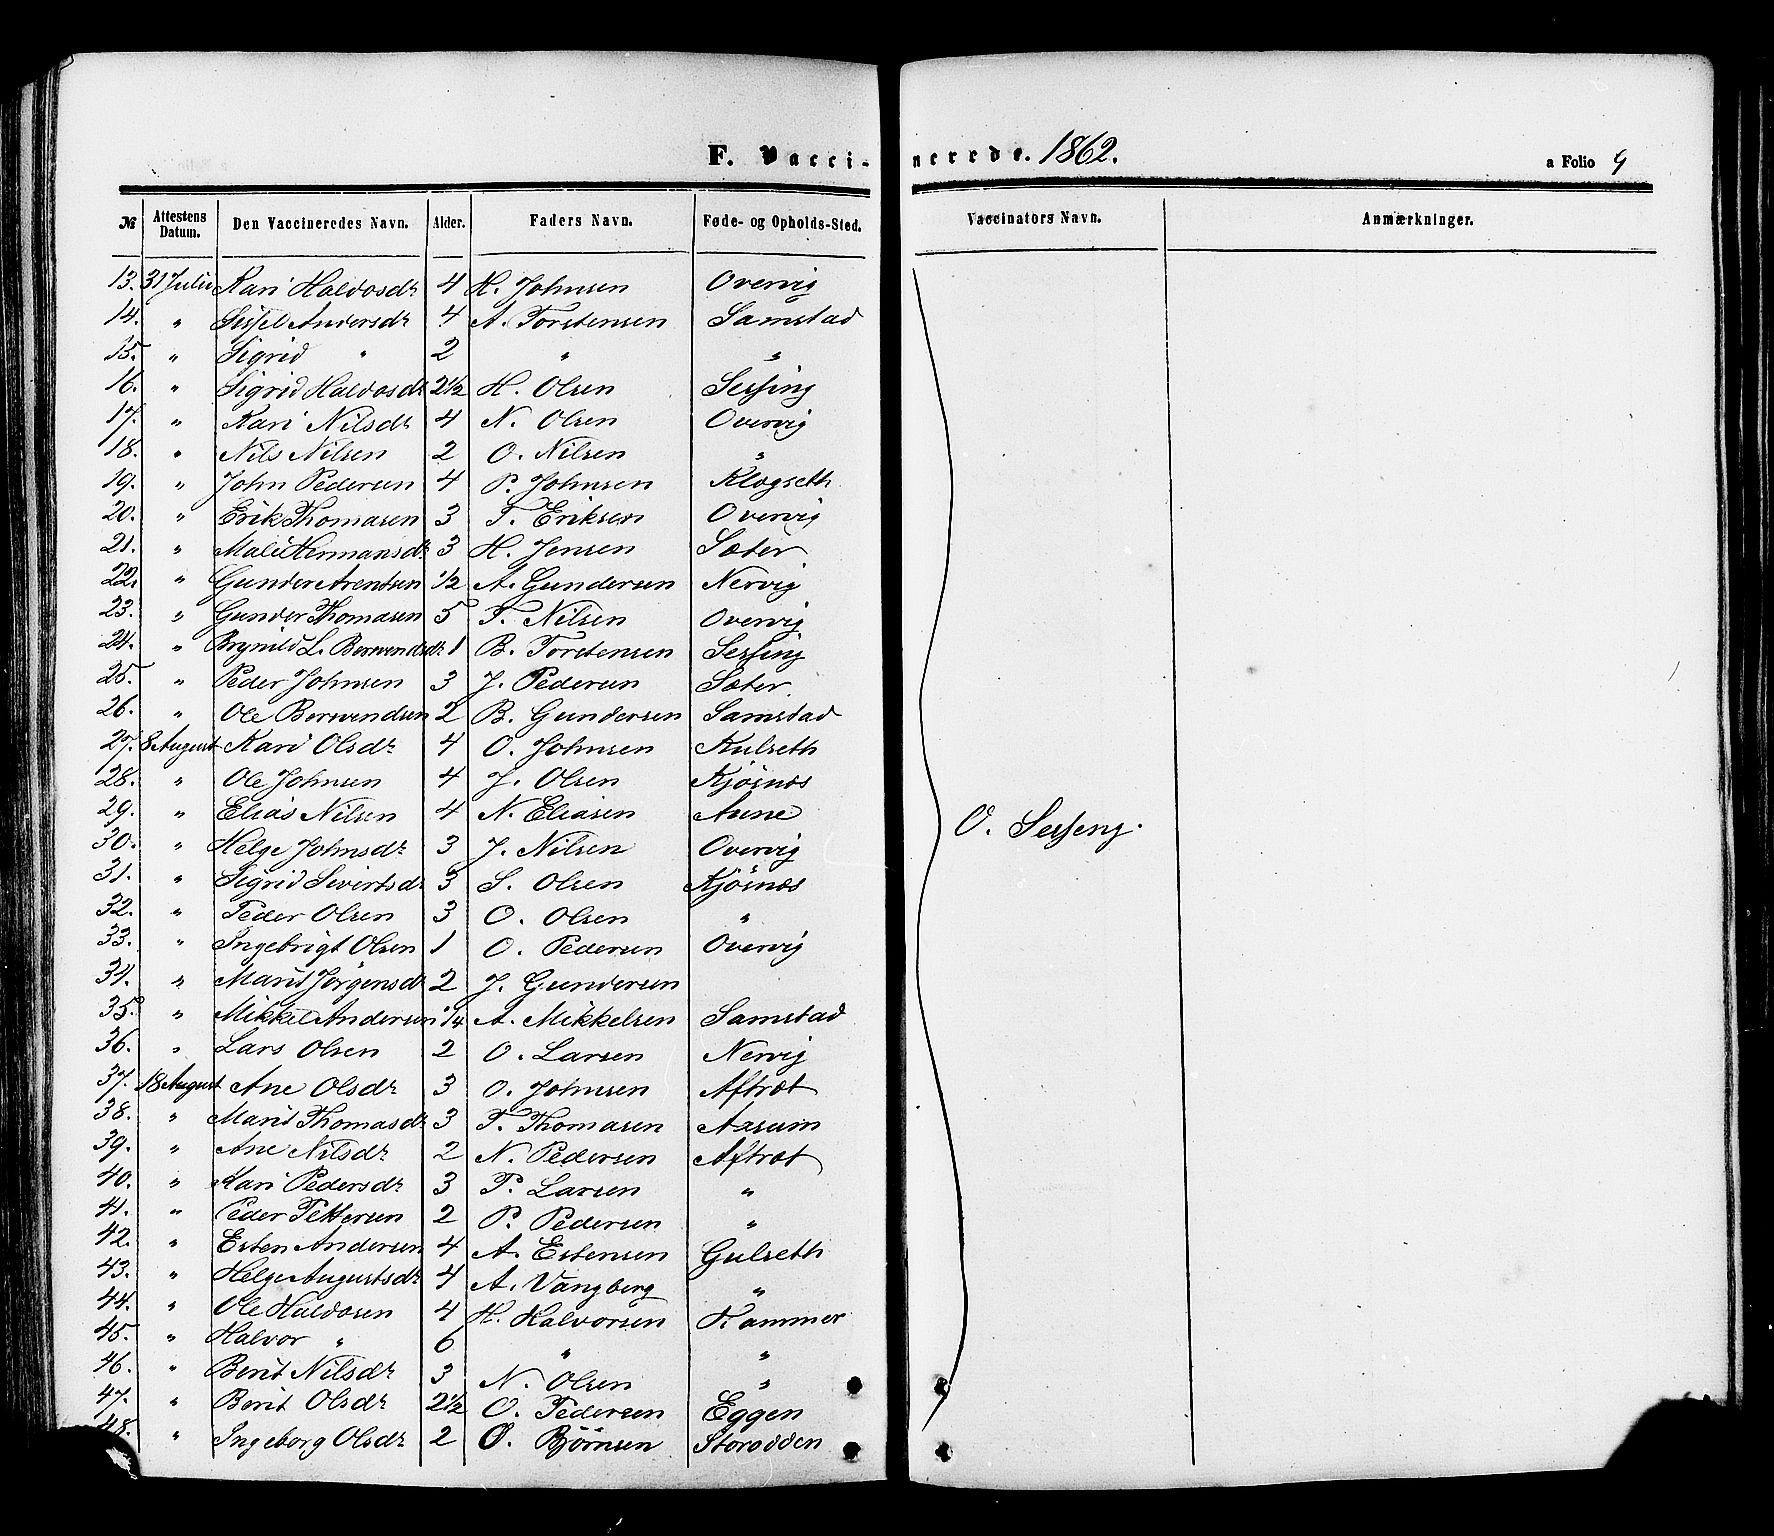 F. Vaccinerede. 1862. a Folio 9
№ Attestens Datum. Den Vaccineredes Navn. Alder. Faders Navn. Føde- og Opholds-Sted. Vaccinators Navn. Anmærkninger.
13. 31 Julii Kari Haldosdr 4 H. Johnsen Overvig
14. " Sissel Andersdr 4 A. Torstensen Samstad
15. " Sigrid " 2 " "
16. " Sigrid Haldosdr 2 1/2 H. Olsen Sessing
17. " Kari Nilsdr 4 N. Olsen Overvig
18. " Nils Nilsen 2 O. Nilsen "
19. " John Pedersen 4 P. Johnsen Klogseth
20. " Erik Thomasen 3 T. Eriksen Overvig
21. " Mali Hermansdr 3 H. Jensen Sæter
22. " Gunder Arentsen 1/2 A. Gundersen Nervig
23. " Gunder Thomasen 5 T. Nilsen Overvig
24. " Brynild L. Berwendsdr 1 B. Torstensen Sessing
25. " Peder Johnsen 3 J. Pedersen Sæter.
26. " Ole Berwendsen 2 B. Gundersen Samstad
27. 8 August Kari Olsdr 4 O. Johnsen Kulseth
28. " Ole Johnsen 4 J. Olsen Kjösnæs
29. " Elias Nilsen 4 N. Eliasen Aune
O. Sesseng.
30. " Helge Johnsdr 3 J. Nilsen Overvig
31. " Sigrid Sivertsdr 3 S. Olsen Kjösnæs
32. " Peder Olsen 3 O. Olsen "
33. " Ingebrigt Olsen 1 O. Pedersen Overvig
34. " Marit Jörgensdr 2 J. Gundersen
35. " Mikkel Andersen 1/4 A. Mikkelsen Samstad
36. " Lars Olsen 2 O. Larsen Nervig
37. 18 August Ane Olsdr 3 O. Johnsen Aftræt
38. " Marit Thomasdr 3 T. Thomasen Aarum
39. " Ane Nilsdr 2 N. Pedersen Aftræt
40. " Kari Pedersdr 3 P. Larsen "
41. " Peder Pettersen 2 P. Pedersen "
42. " Esten Andersen 4 A. Estensen Gulseth
43. " Helge Augustsdr 4 A. Vangberg "
44. " Ole Haldosen 4 H. Halvorsen Kammer
45. " Halvor " 6 " "
46. " Berit Nilsdr 3 N. Olsen "
47. " Berit Olsdr 2 1/2 O. Pedersen Eggen
48. " Ingeborg Olsdr 2 O. Bjørnsen Storodden